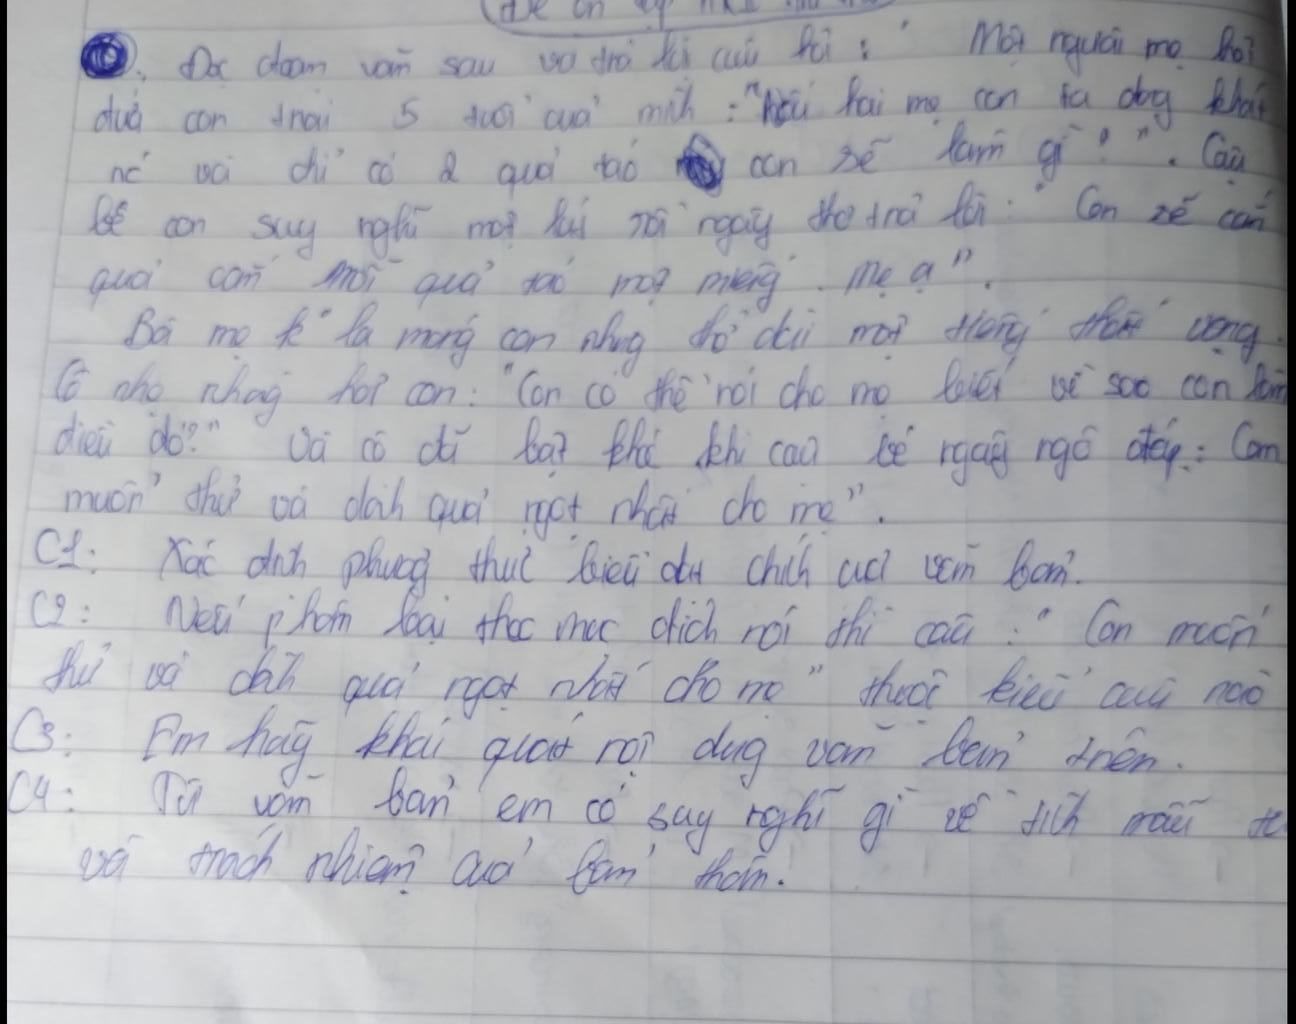 Đọc đoạn văn sau và trả lời câu hỏi: " Một người mẹ hỏi
đứa con trai 5 tuổi của mình: "Nếu hai mẹ con ta đag khát
nc và chỉ có 2 quả táo con sẽ làm gì?". Cậu
bé con suy nghĩ một lúi rồi ngây thơ trả lời: " Con sẽ cắn
quả cắn mỗi quả táo một miếng mẹ ạ".
Bà mẹ k la mắng con nhưg thở dài một tiếng thất vọng.
Cô nhẹ nhàng hỏi con: "Con có thể nói cho mẹ biết vì sao con làm
điều đó?" Và cô đã bật khó khi cậu bé ngây ngô đáp: Con
muốn thử và dành quả ngọt nhất cho mẹ".
C1: Xác định phươg thức biểu đạt chính của văn bản.
C2: Nếu phân loại theo mục đích nói thì câu: " Con muốn
thử và dành quả ngọt nhất cho mẹ" thuộc kiểu câu nào
C3: Em hãy khái quát nội dug văn bản trên.
C4: Từ văn bản em có suy nghĩ gì về tình mẫu
và trách nhiệm của bản thân.